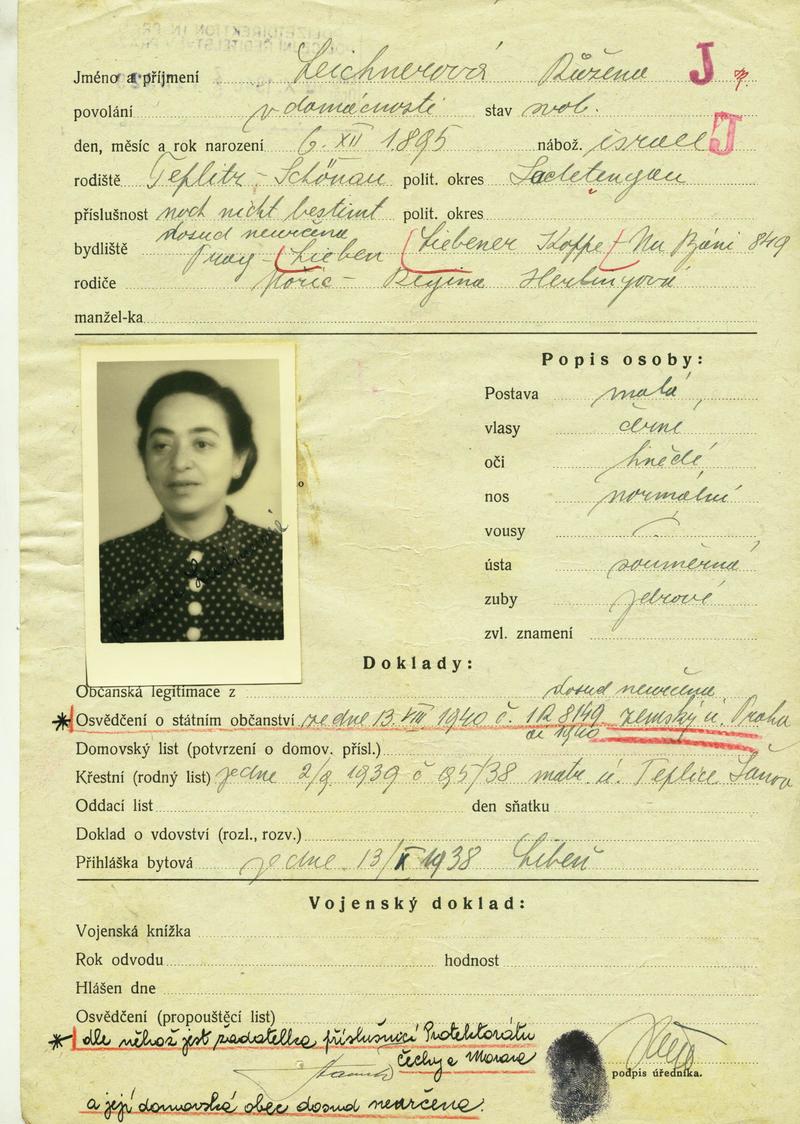 Jméno a příjmení Leichnerová Růžena J
povolání v domácnosti stav svob.
den, měsíc a rok narození 6. XII 1895 nábož. israel J
rodiště Teplitz-Schönau polit. okres
příslušnost noch nicht bestimt polit. okres
dosud neurčena
bydliště Prag - (Lieben (Liebener Koppe) Na Báni 849
rodiče Mořic - Regina
manžel-ka
Popis osoby:
Postava malá
vlasy černé
oči hnědé
nos normální
vousy
ústa souměrná
zuby
zvl. znamení
Doklady:
Občanská legitimace z dosud neurčena
* Osvědčení o státním občanství ze dne 13. VIII 1940 č. 1a 8149 zemský ú. Praha
ai 1940
Domovský list (potvrzení o domov. přísl.)
Křestní (rodný list) ze dne 2/9 1939 č 95/38 matr. ú. Teplice Šanov
Oddací list den sňatku
Doklad o vdovství (rozl., rozv.)
Přihláška bytová ze dne 13/X 1938 Libeň
Vojenský doklad:
Vojenská knížka
Rok odvodu hodnost
Hlášen dne
Osvědčení (propouštěcí list)
* dle něhož jest žadatelka příslušnicí Protektorátu
Čechy a Morava
podpis úředníka.
a její domovská obec dosud neurčena.